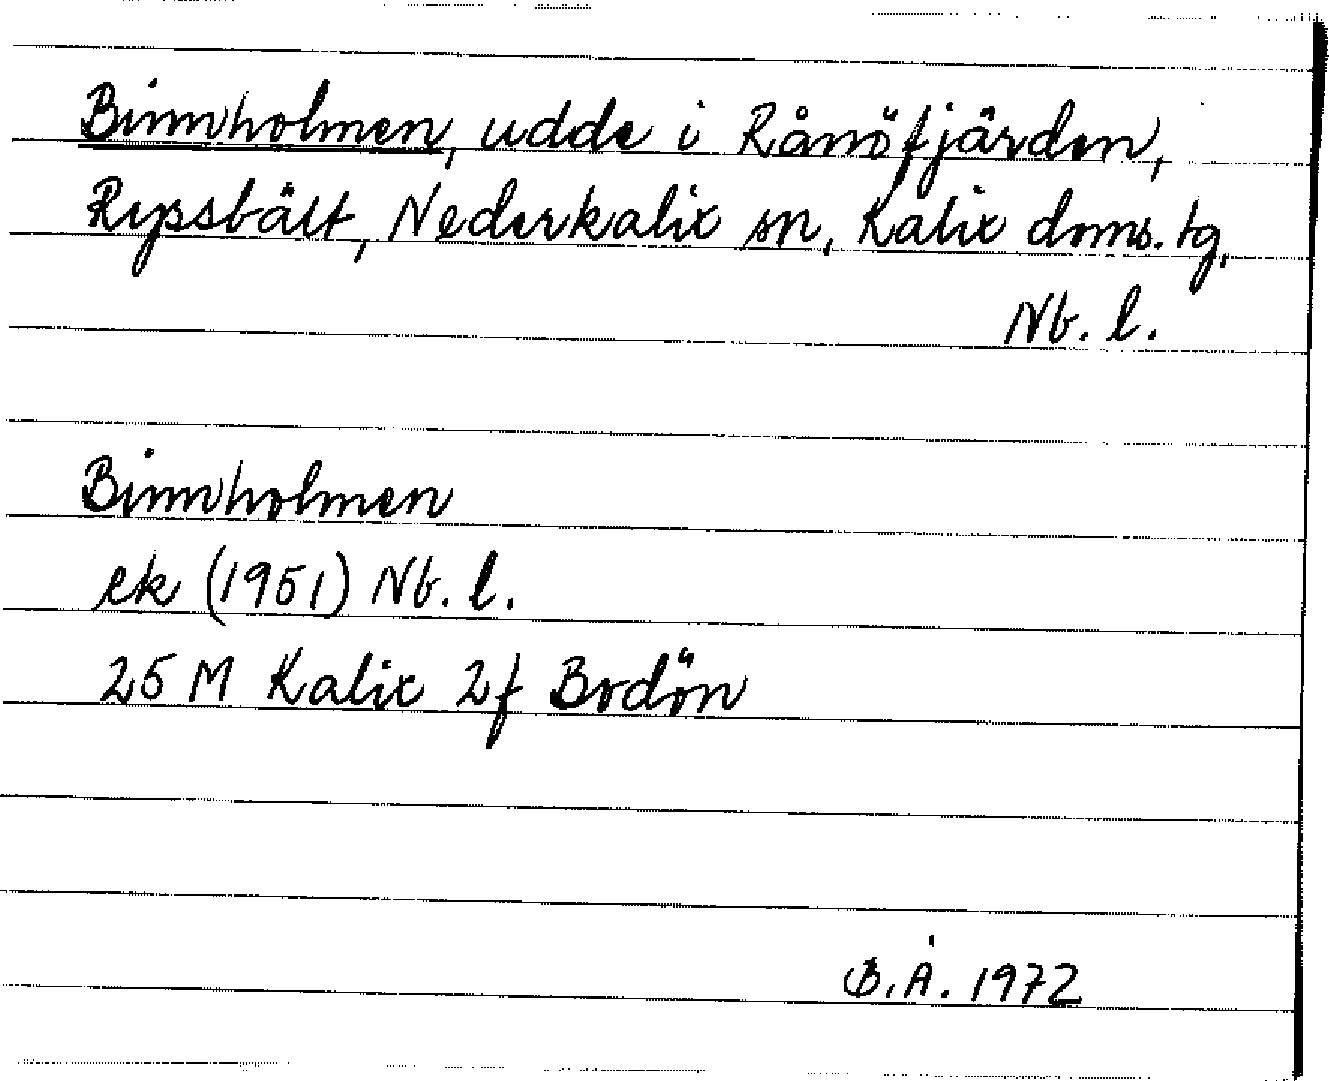 Binnholmen, udde i Rånöfjärden,
Ryssbält, Nederkalix sn, Kalix doms. tg,
Nb. l.
Binnholmen
ek (1951) Nb. l.
25 M Kalix 2f Bodön
B.Å. 1972